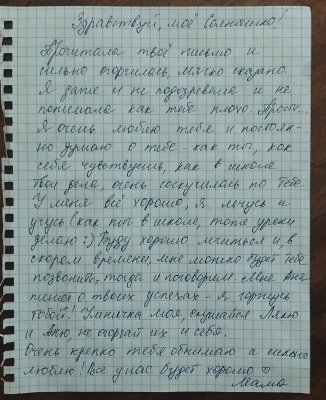 Здравствуй, моё Солнышко!
Прочитала твоё письмо и
сильно огорчилась, мягко сказано.
Я даже и не подозревала и не
понимала как тебе плохо. Прости...
Я очень люблю тебя и постоян-
но думаю о тебе - как ты, как
себя чувствуешь, как в школе
твои дела, очень соскучилась по тебе.
У меня всё хорошо, я лечусь и
учусь (как ты в школе, тоже уроки
делаю :) Буду хорошо лечиться и, в
скором времени, мне можно будет тебе
позвонить, тогда и поговорим. Мне Аня
пишет о твоих успехах - я горжусь
тобой! Умничка моя, слушайся
и Аню, не огорчай их и себя.
Очень крепко тебя обнимаю и сильно
люблю! Все у нас будет хорошо ♡
Мама